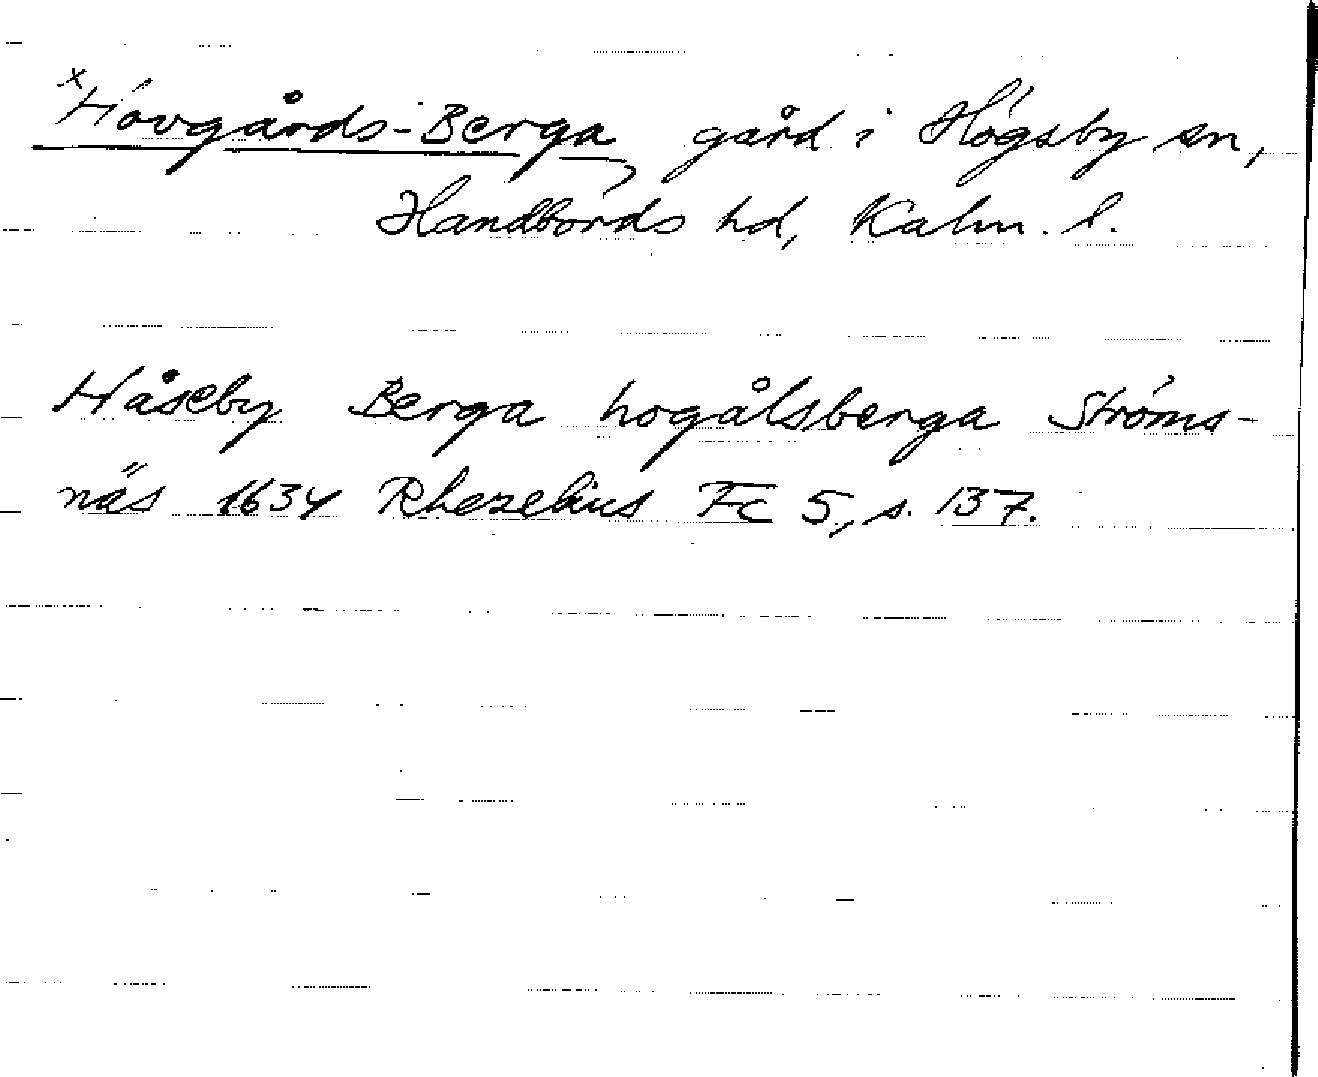 x Hovgårds-Berga, gård i Högsby sn,
Handbörds hd, Kalm. l.
Håseby Berga hogålsberga Ströms-
näs 1634 Rhezelius Fc 5, s. 137.